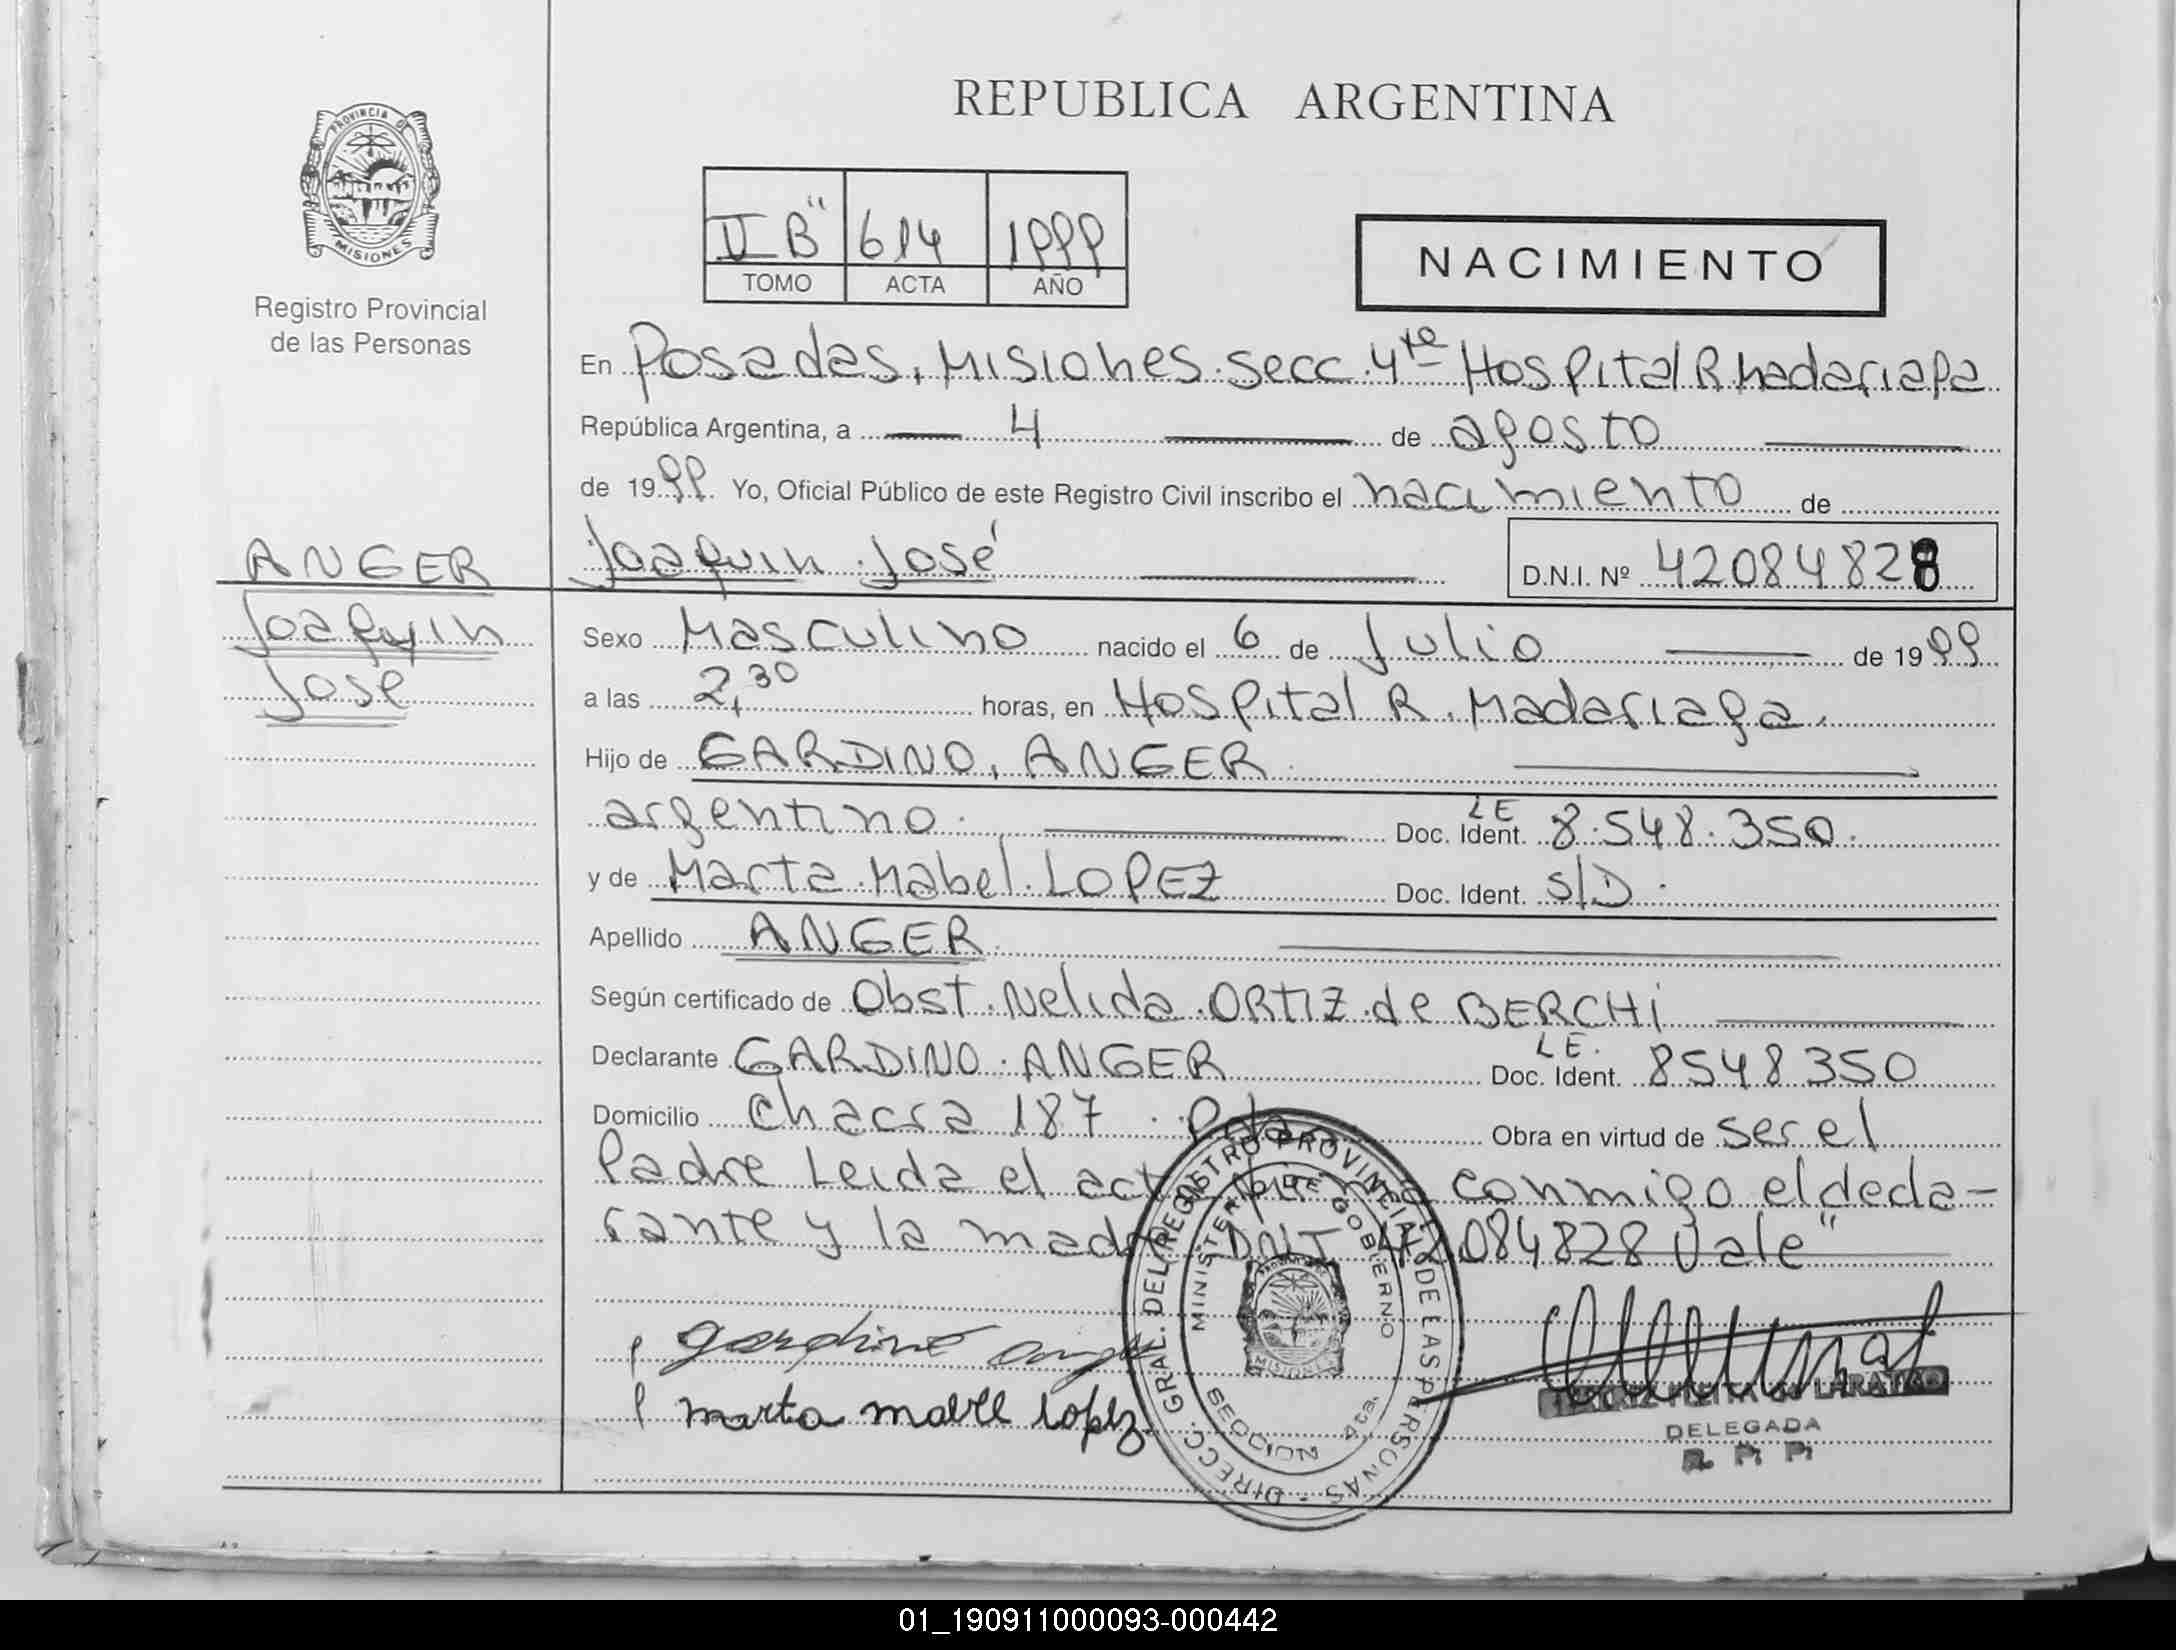 REPUBLICA ARGENTINA
PROVINCIA DE
MISIONES
Registro Provincial
de las Personas
II B" 614 1999
TOMO ACTA AÑO
NACIMIENTO
En Posadas, Misiones. Secc. 4ta Hospital R. Madariaga
República Argentina, a 4 de agosto
de 1999 Yo, Oficial Público de este Registro Civil inscribo el nacimiento de
ANGER Joaquin José D.N.I. Nº 42084828
Joaquin
José
Sexo Masculino nacido el 6 de Julio de 1999
a las 2,30 horas, en Hospital R. Madariaga.
Hijo de GARDINO, ANGER
argentino. Doc. Ident. LE 8.548.350.
y de Marta Mabel LOPEZ Doc. Ident. S/D.
Apellido ANGER
Según certificado de Obst. Nelida ORTIZ de BERCHI
Declarante GARDINO ANGER Doc. Ident. L.E. 8548350
Domicilio Chacra 187. Pdas Obra en virtud de ser el
Padre Leida el acta conmigo el decla-
rante y la madre DNI 42.084828 Vale"
gardino anger
marta mabel lopez
DIRECC. GRAL. DEL REGISTRO PROVINCIAL DE LAS PERSONAS
MINISTERIO DE GOBIERNO
MISIONES
SECCION 4ta.
DELEGADA
R. P. P.
01_190911000093-000442